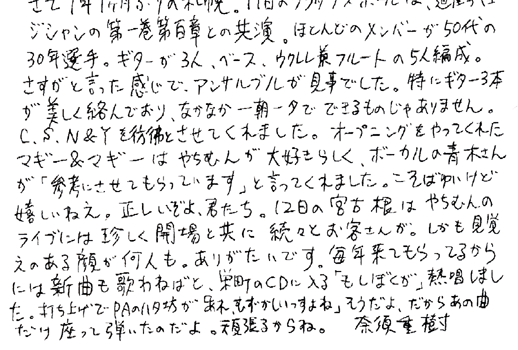 さて1年1ヶ月ぶりの札幌。11日の
ジシャンの第一巻第百章との共演。ほとんどのメンバーが50代の
30年選手。ギターが3人、ベース、ウクレレ兼フルートの5人編成。
さすがと言った感じで、アンサンブルが見事でした。特にギター3本
が美しく絡んでおり、なかなか一朝一夕でできるものじゃありません。
C,S,N&Yを彷彿とさせてくれました。オープニングをやってくれた
マギー&マギーはやちむんが大好きらしく、ボーカルの青木さん
が「参考にさせてもらっています」と言ってくれました。こそばゆいけど
嬉しいねえ。正しいぞよ、君たち。12日の宮古根はやちむんの
ライブには珍しく開場と共に続々とお客さんが。しかも見覚
えのある顔が何人も。ありがたいです。毎年来てもらってるから
には新曲も歌わねばと、栄町のCDに入る「もしぼくが」熱唱しまし
た。打ち上げでPAのハタ坊が「あれ、むずかしいっすよね」そうだよ、だからあの曲
だけ座って弾いたのだよ。頑張るからね。 奈須重樹